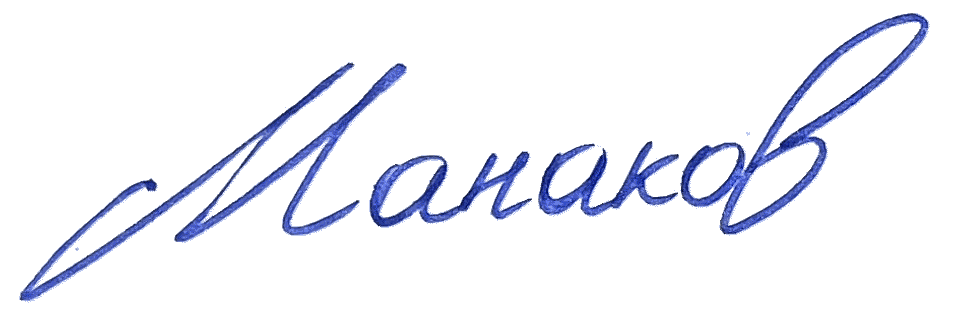 Манаков